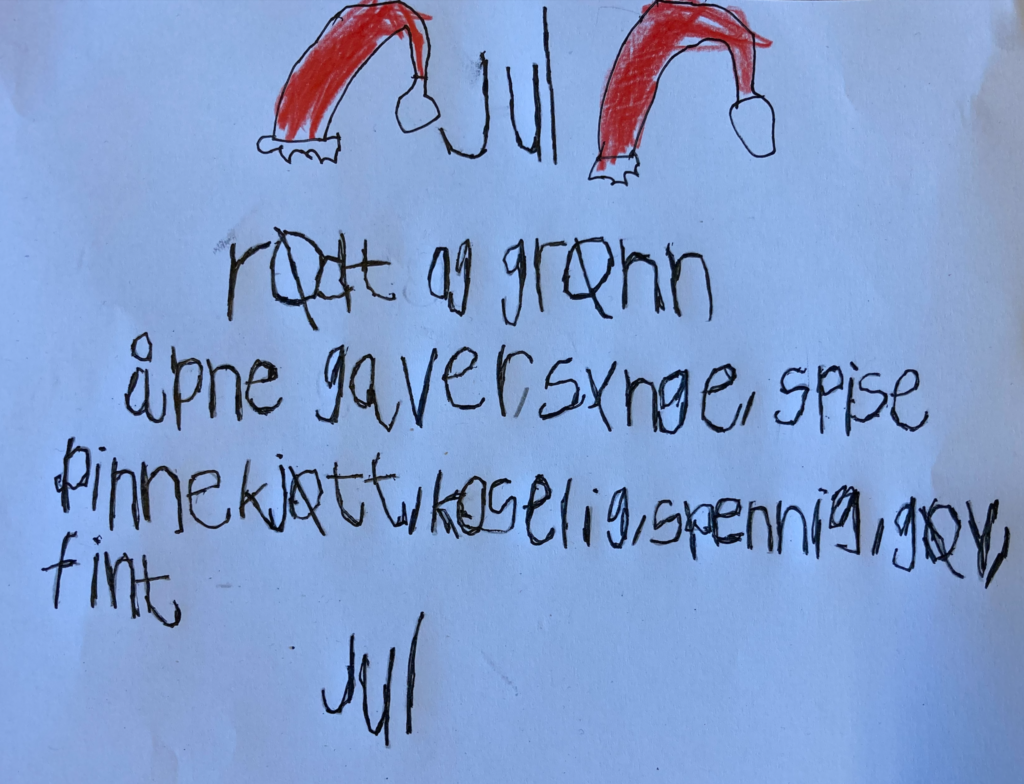 Jul
rødt og grønn
åpne gaver, synge, spise
pinnekjøtt, koselig, spennig, gøy,
fint
Jul